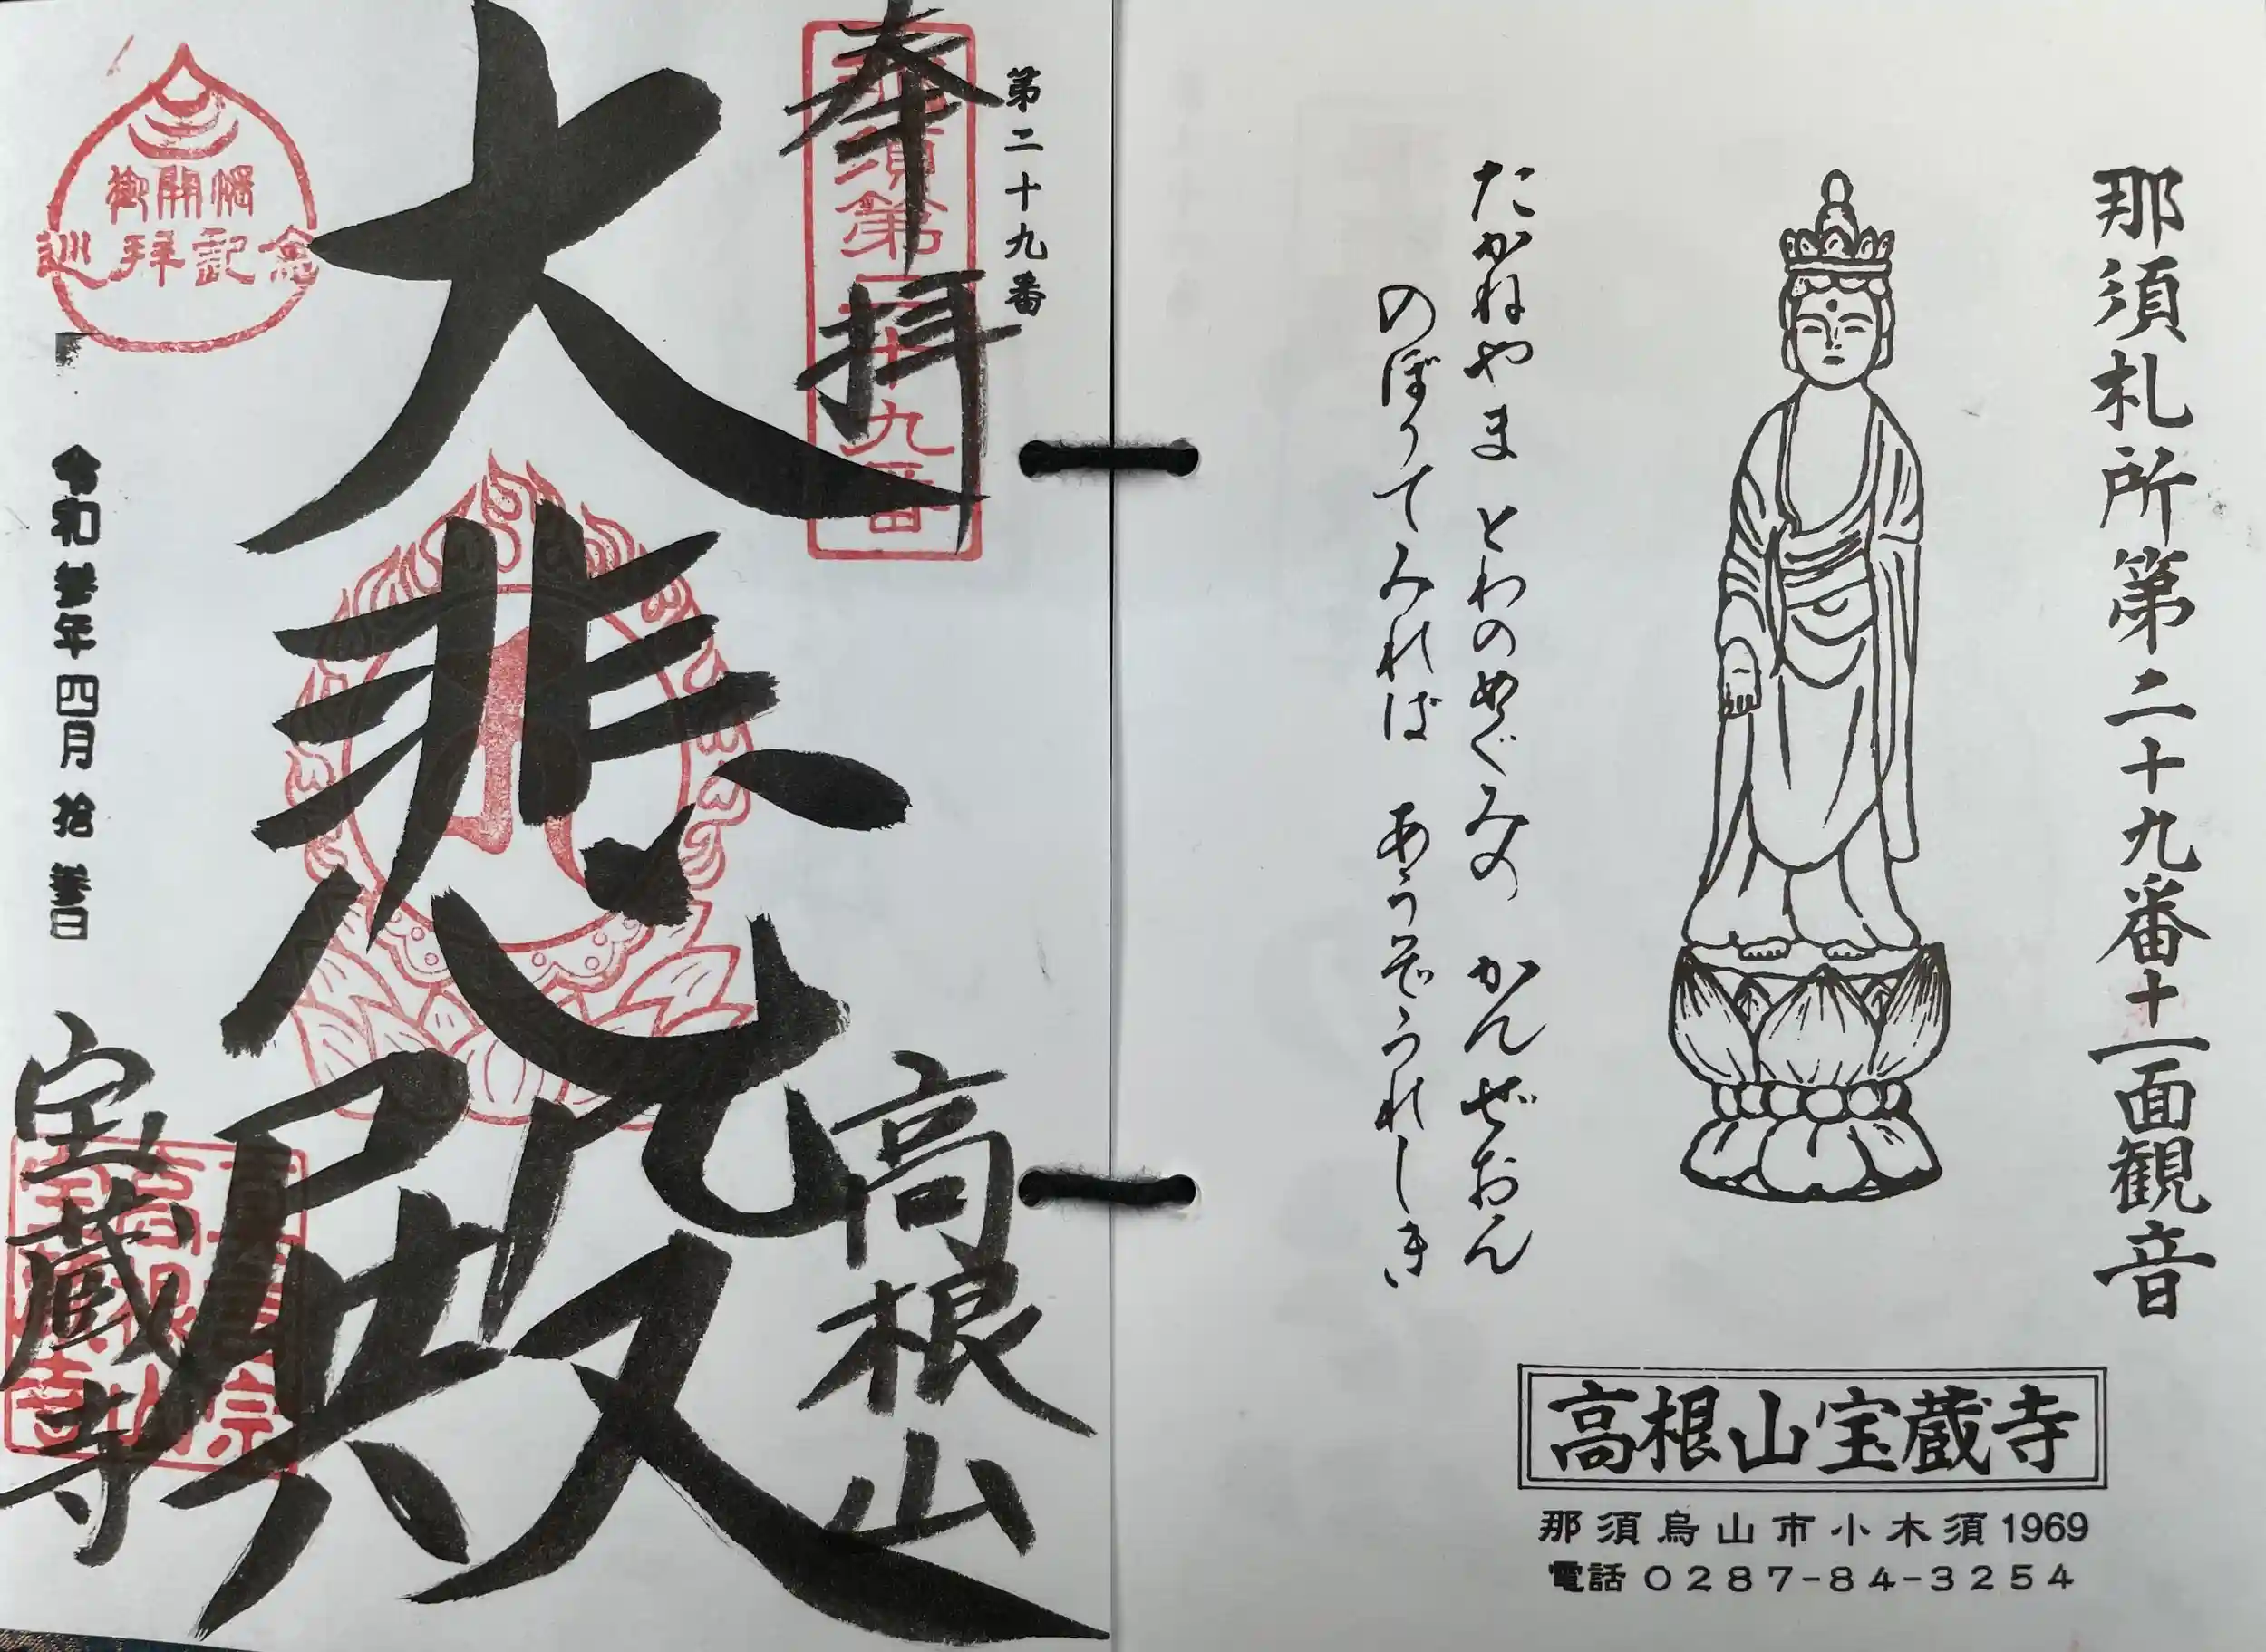 那須札所第二十九番十一面観音
たかねやま とわのめぐみの かんぜおん
のぼりてみれば あうぞうれしき
高根山宝蔵寺
那須烏山市小木須1969
電話 0287-84-3254
第二十九番
奉拝
那須第二十九番
高根山
大悲殿
御開帳
巡拝記念
令和参年四月拾参日
宝蔵寺